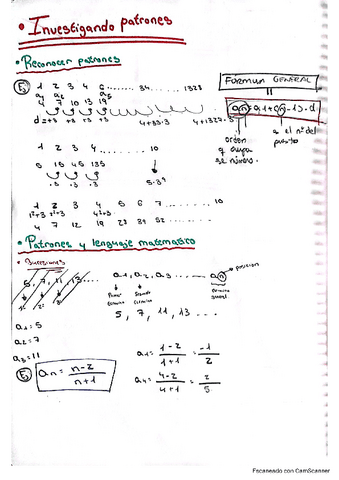 • Investigando patrones
• Reconocer patrones
Ej 1 2 3 4 6 ........ 34 ........... 1328
a₁ a₂
4 7 10 13 19
d=+3 +3 +3 +3 4+33·3 4+1327·3
FÓRMULA GENERAL
=
an = a1+(n-1)·d
orden q ocupa
1 2 3 4 ........ 10
5 15 45 135
·3 ·3 ·3 5·3⁹
1 2 3 4 5 6 7 ........... 10
1²+3 2²+3 4²+3
4 7 12 19 28 39 52 ......
• Patrones y lenguaje matemático
• Sucesiones
5, 7, 11, 13 ...
a1, a2, a3 .... an → posición
Primer término
Segundo término
término general
5, 7, 11, 13 ....
a1 = 5
a2 = 7
a3 = 11
Ej an = n-2 / n+1
a1 = 1-2 / 1+1 = -1 / 2
a4 = 4-2 / 4+1 = 2 / 5
Escaneado con CamScanner